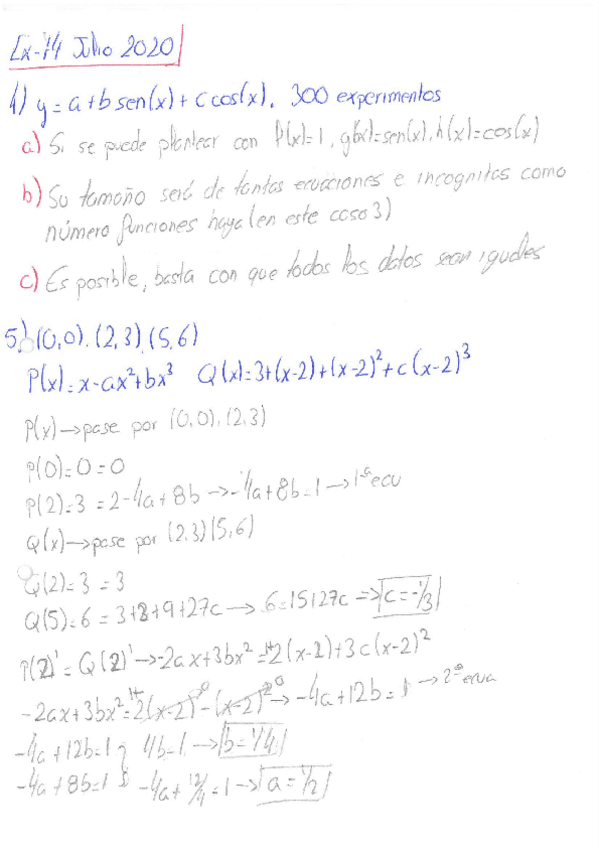 Ex-14 Julio 2020
4) y = a + b sen(x) + c cos(x), 300 experimentos
a) Si se puede plantear con P(x)=1, g(x)=sen(x), h(x)=cos(x)
b) Su tamaño será de tantas ecuaciones e incognitas como
número funciones haya (en este caso 3)
c) Es posible, basta con que todos los datos sean iguales
5) (0,0), (2,3), (5,6)
P(x)=x-ax²+bx³ Q(x)=3+(x-2)+(x-2)²+c(x-2)³
P(x)→pase por (0,0), (2,3)
P(0)=0=0
P(2)=3=2-4a+8b→-4a+8b=1→1ª ecu
Q(x)→pase por (2,3)(5,6)
Q(2)=3=3
Q(5)=6=3+3+9+27c→6=15+27c⇒c=-1/3
P(2)'=Q(2)'→-2ax+3bx²=1+2(x-2)+3c(x-2)²
-2ax+3bx²=1+2(x-2)⁰-(x-2)²⁰→-4a+12b=1→2ª ecua
-4a+12b=1 } 4b=1→b=1/4
-4a+8b=1 -4a+12/4=1→a=1/2